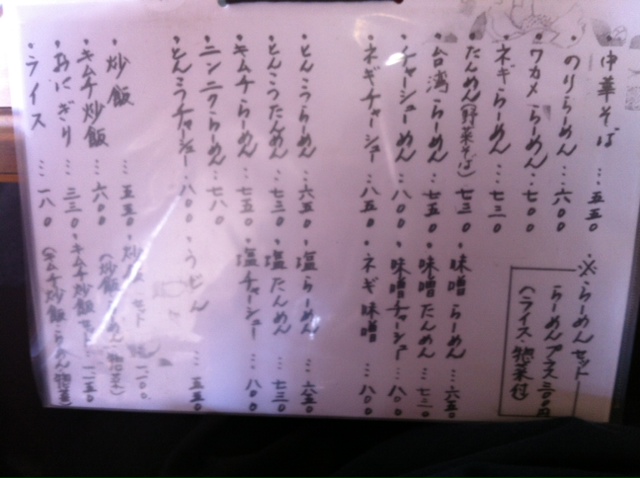 ・中華そば…五五〇
・のりらーめん…六〇〇
・ワカメらーめん…七〇〇
・ネギらーめん…七三〇
・たんめん(野菜そば)七三〇
・台湾らーめん…七五〇
・チャーシューめん…八〇〇
・ネギチャーシュー…八五〇
※らーめんセット
らーめんプラス三〇〇円
(ライス・惣菜付)
・味噌らーめん…六五〇
・味噌たんめん…七三〇
・味噌チャーシュー…八〇〇
・ネギ味噌…八〇〇
・とんこつらーめん…六五〇
・とんこつたんめん…七三〇
・キムチらーめん…七五〇
・ニンニクらーめん…七八〇
・とんこつチャーシュー…八〇〇
・塩らーめん…六五〇
・塩たんめん…七三〇
・塩チャーシュー…八〇〇
・うどん…五五〇
・炒飯…五五〇
・キムチ炒飯…六〇〇
・おにぎり…三三〇
・ライス…一八〇
・炒飯セット…一一〇〇
(炒飯・らーめん・惣菜)
・キムチ炒飯セット…一一五〇
(キムチ炒飯・らーめん・惣菜)